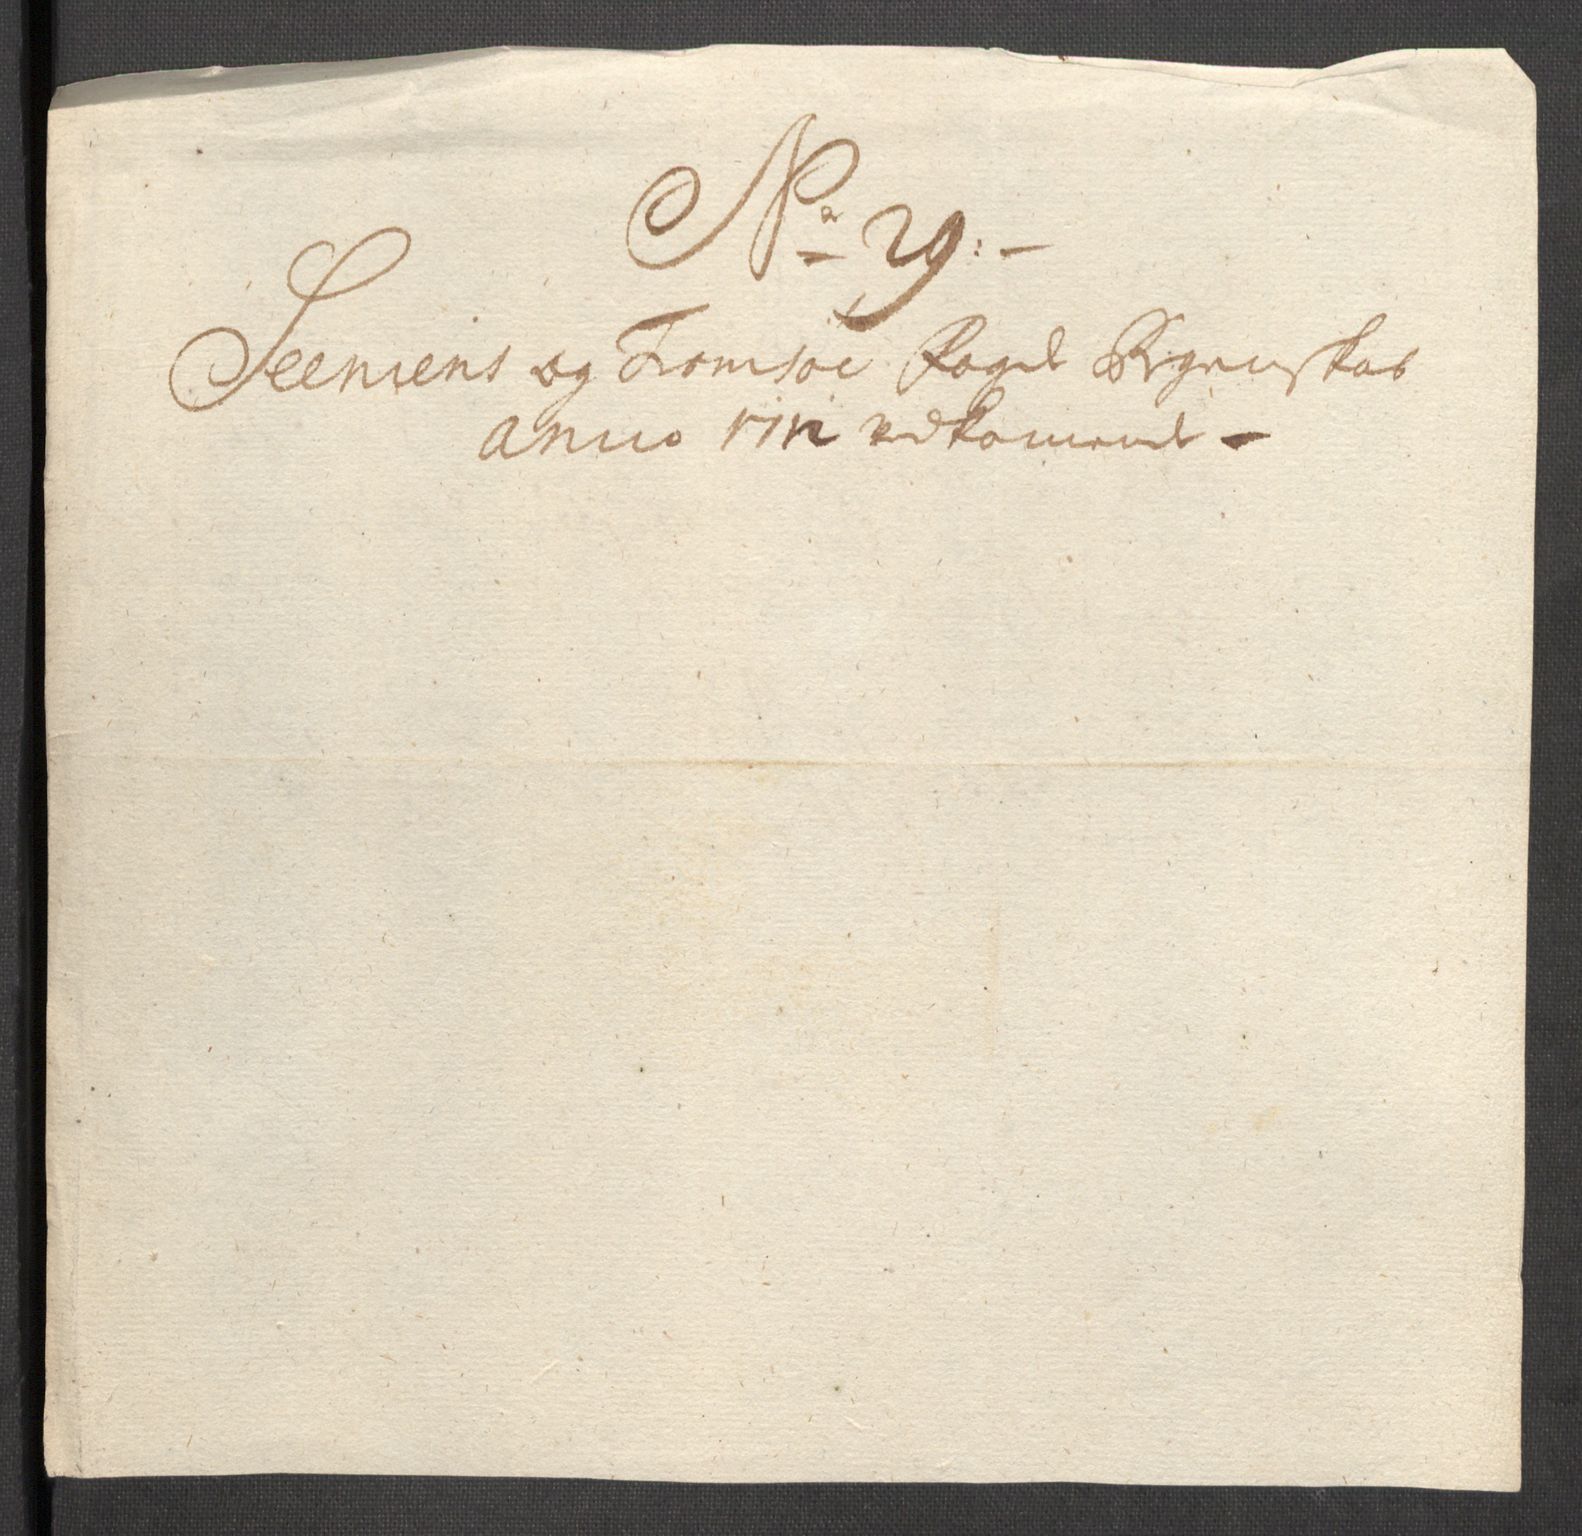 No 29:-
Seeniens og Tromsøe Fogd: Regenskab
anno 1712 vedkommend -